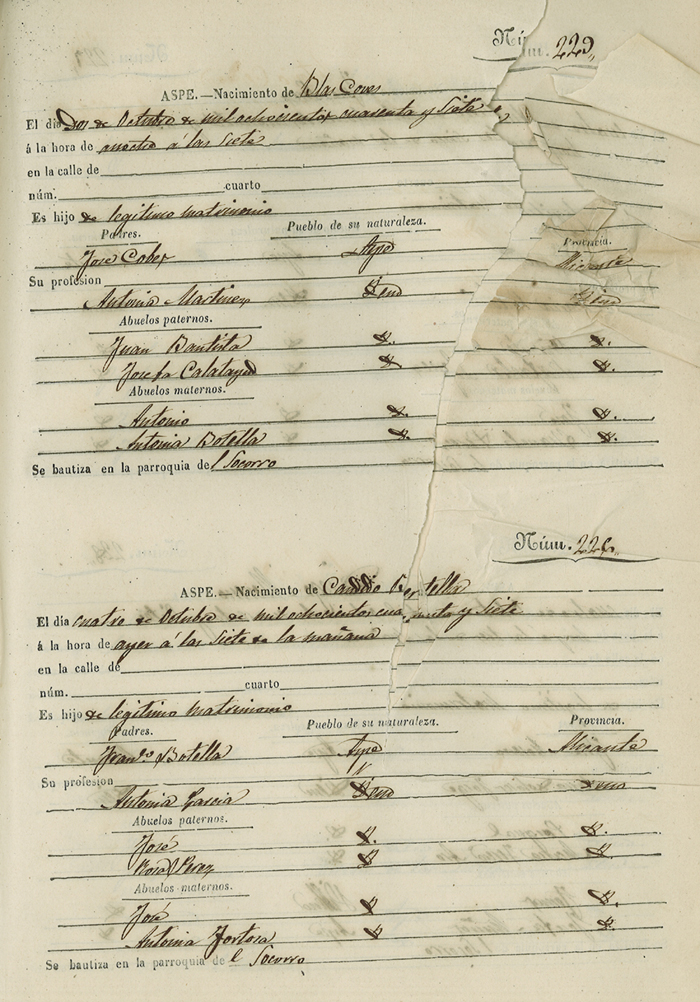 Núm. 225
ASPE.—Nacimiento de Blas Cover
El dia Dos de Octubre de mil ochocientos cuarenta y siete
á la hora de anoche á las siete
en la calle de
núm. cuarto
Es hijo de legitimo matrimonio
Padres. Pueblo de su naturaleza. Provincia.
Jose Cober Aspe Alicante
Su profesion
Antonia Martinez Ydem Ydem
Abuelos paternos.
Juan Bautista Y. Y.
Josefa Calatayud Y. Y.
Abuelos maternos.
Antonio Y. Y.
Antonia Botella Y. Y.
Se bautiza en la parroquia del Socorro
Núm. 226
ASPE.—Nacimiento de Candido Botella
El dia cuatro de Octubre de mil ochocientos cuarenta y siete
á la hora de ayer á las siete de la mañana
en la calle de
núm. cuarto
Es hijo de legitimo matrimonio
Padres. Pueblo de su naturaleza. Provincia.
Franco Botella Aspe Alicante
Su profesion
Antonia Garcia Ydem Ydem
Abuelos paternos.
José Y. Y.
Rosa Perez Y. Y.
Abuelos maternos.
José Y. Y.
Antonia Tortosa Y. Y.
Se bautiza en la parroquia de l Socorro